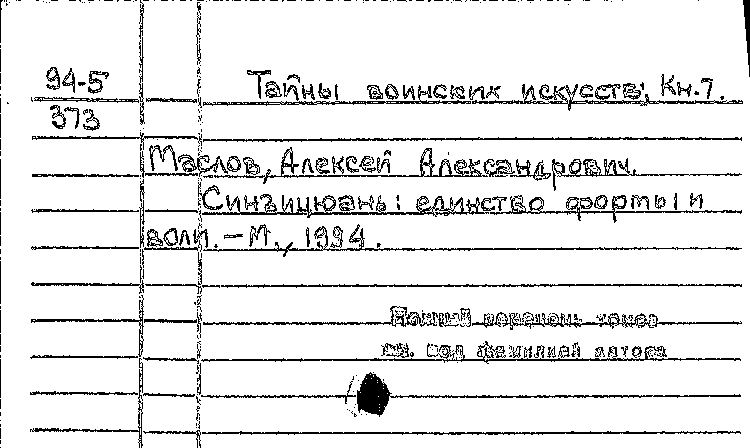 94-5
373
Тайны воинских искусств; Кн.7.
Маслов, Алексей Александрович.
Синъицюань: единство формы и
воли. – М., 1994.
Полный перечень томов
см. под фамилией автора